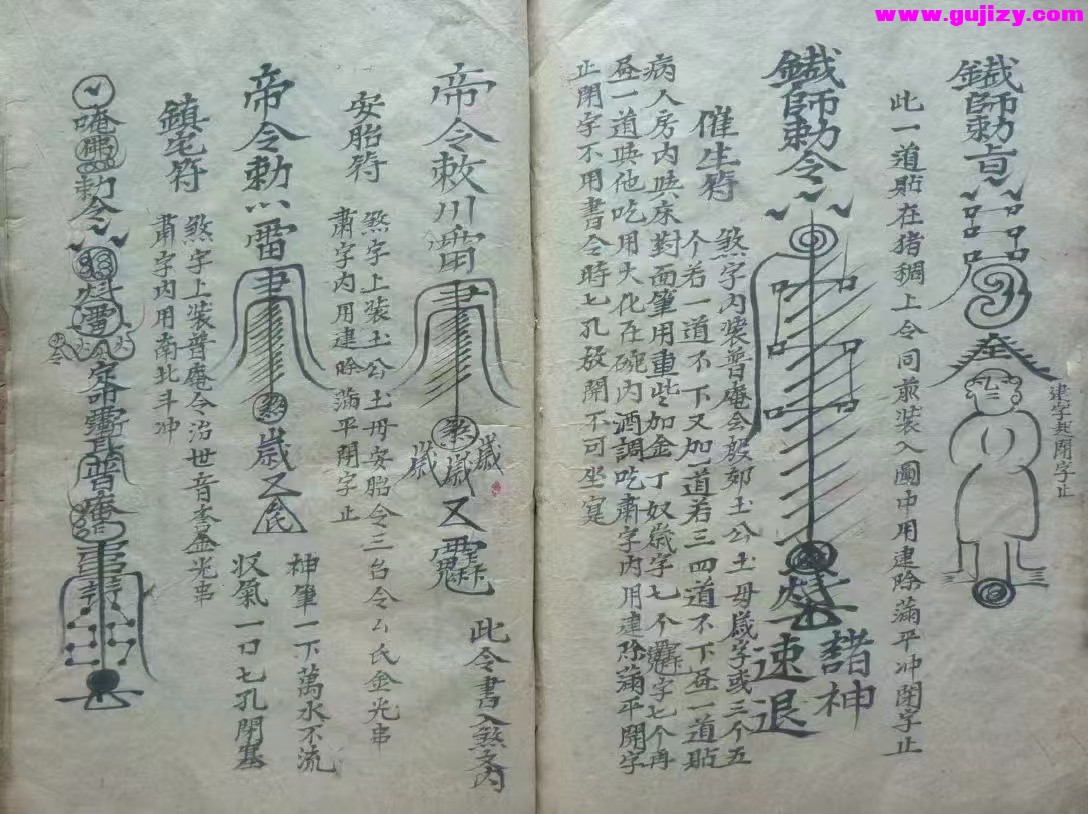 www.gujizy.com
鐵師勅㫖
建字其開字止
此一道貼在猪稠上令同煎装入圖中用建除滿平冲閉字止
鐵師勅令
諸神
速退
催生符
煞字内装普庵会殷郊土公土母嵗字或三个五
个若一道不下又加一道若三四道不下昼一道貼
病人房内𭥍床对面筆用重些加金丁奴嵗字七个字七个再
昼一道他吃用火化在碗内酒調吃肅字内用建除滿平開字
止閉字不用書令時七孔放開不可坐寔
帝令敕
雷
煞
嵗嵗嵗
又
此令書入煞文内
安胎符
煞字上装土公土母安胎令三台令厶氏金光串
肅字内用建除滿平閉字止
帝令勅
雷
嵗又
神筆一下萬水不流
収氣一口七孔閉塞
鎮宅符
煞字上装普庵令治世音李金光串
肅字内用南北斗冲
唵佛勅令
雷
普庵